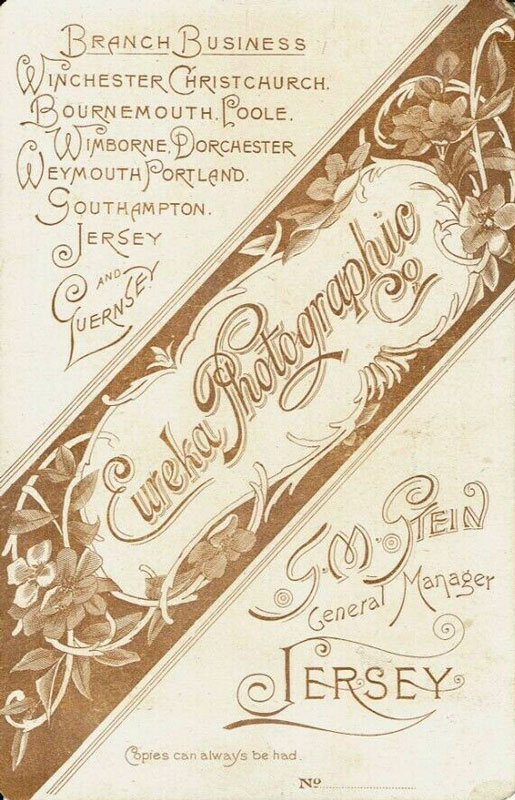 BRANCH BUSINESS
WINCHESTER CHRISTCHURCH.
BOURNEMOUTH. POOLE.
WIMBORNE. DORCHESTER
WEYMOUTH PORTLAND.
SOUTHAMPTON.
JERSEY
AND
GUERNSEY
Eureka Photographic
Co
S. M. STEIN
General Manager
JERSEY
Copies can always be had.
No